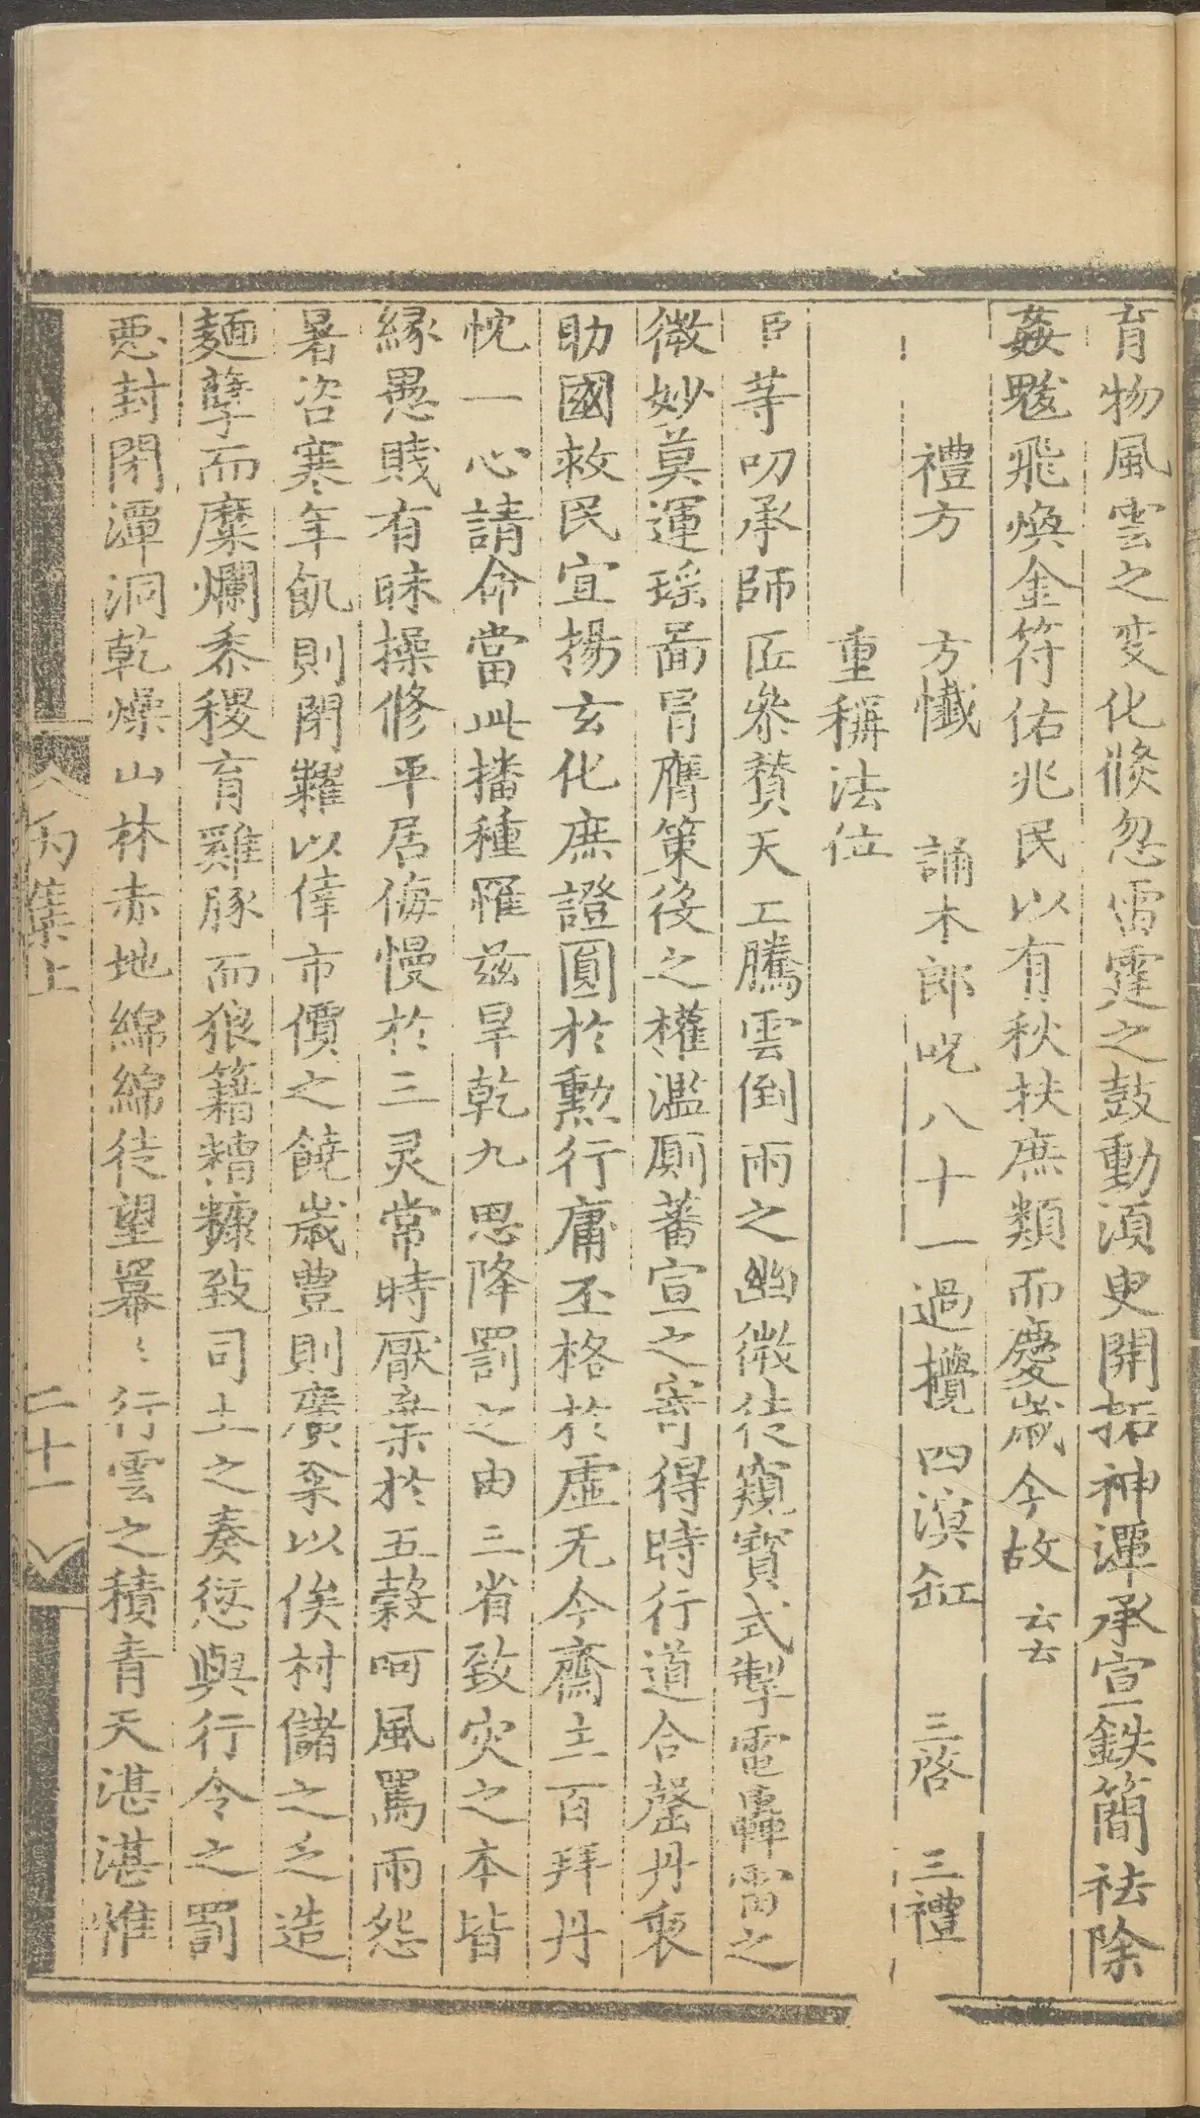 育物風雲之变化倐忽雷霆之鼓動湏臾開拓神潭承宣鉄簡祛除
姦魃飛煥金符佑兆民以有秋扶庶類而慶歲今故 云云
禮方 方懺 誦木郎呪八十一過攪四溟缸 三啓 三禮
重稱法位
臣等叨承師匠叅賛天工騰雲倒雨之幽微徒窺寳式掣電轟雷之
微妙莫運瑶啚冐膺策役之權濫厠蕃宣之寄得時行道合罄丹衷
助國救民宜揚玄化庶證圓於勲行庸丕格於虛无今齋主百拜丹
忱一心請命當此播種罹兹旱乾九思降罰之由三省致灾之本皆
緣愚賤有昧操修平居侮慢於三灵常時厭棄於五榖呵風罵雨怨
暑咨寒年飢則閉糶以倖市價之饒歲豊則廣籴以俟村儲之乏造
麵孽而糜爛黍稷育雞豚而狼籍糟糠致司土之奏愆與行令之罰
惡封閉潭洞乾燥山林赤地綿綿徒望羃〻行雲之積青天湛湛惟
丙集上 二十一